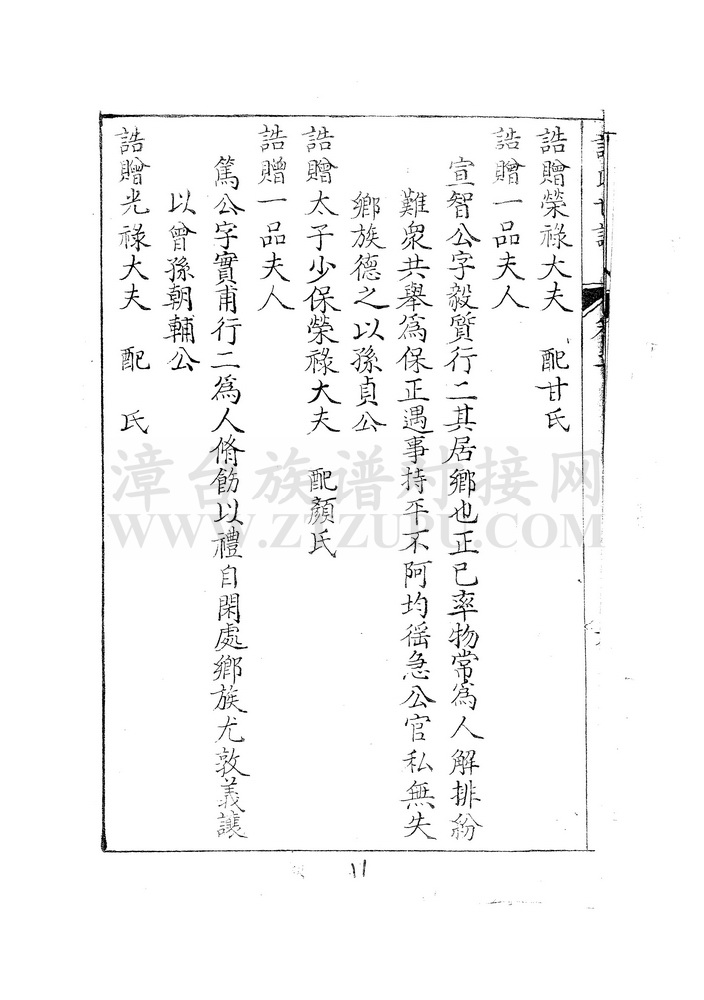 誥贈榮祿大夫 配甘氏
誥贈一品夫人
宣智公字毅質行二其居鄉也正已率物常為人解排紛
難衆共舉為保正遇事持平不阿均徭急公官私無失
鄉族德之以孫貞公
誥贈太子少保榮祿大夫 配顏氏
誥贈一品夫人
篤公字實甫行二為人脩飭以禮自閑處鄉族尤敦義讓
以曾孫朝輔公
誥贈光祿大夫 配 氏
漳台族谱对接网
WWW.ZTZUPU.COM